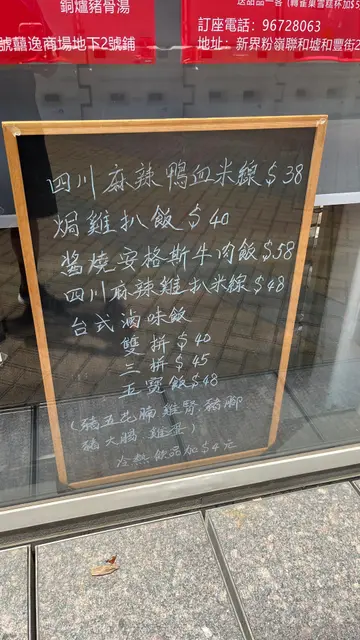 銅爐豬骨湯
號龍逸商場地下2號鋪
訂座電話：96728063
地址：新界粉嶺聯和墟和豐街2
四川麻辣鴨血米線$38
焗雞扒飯$40
醬燒安格斯牛肉飯$58
四川麻辣雞扒米線$48
台式滷味飯
雙拼$40
三拼$45
五寶飯$48
(豬五花腩 雞腎 豬腳
豬大腸 雞蛋)
冷熱飲品加$4元